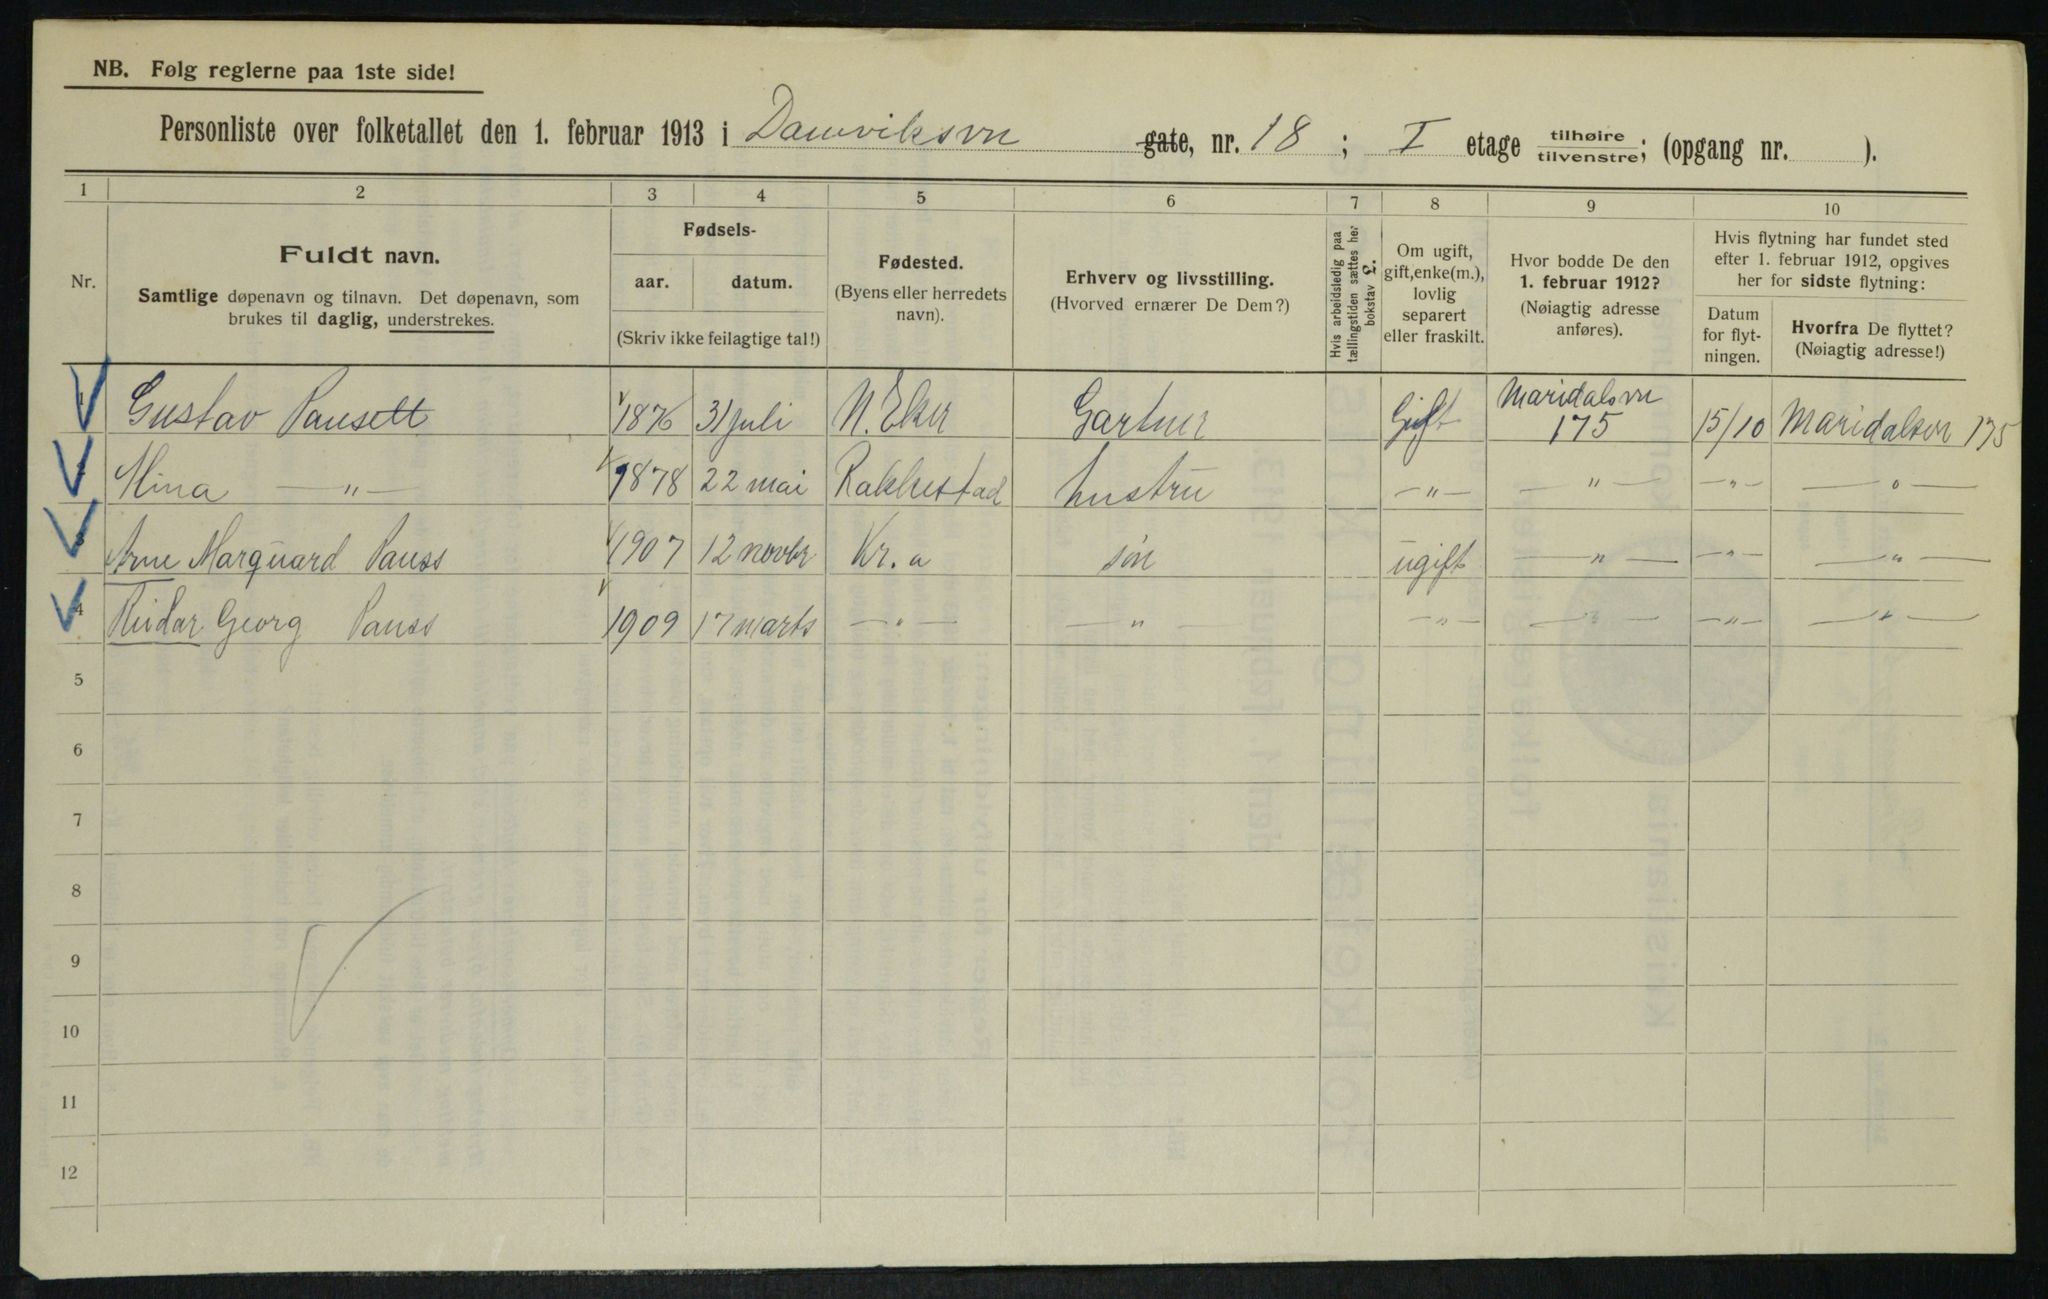 NB. Følg reglerne paa 1ste side!
Personliste over folketallet den 1. februar 1913 i Damviksvn gate, nr. 18; I etage tilhøire tilvenstre; (opgang nr. ).
1 2 3 4 5 6 7 8 9 10
Nr.
Fuldt navn.
Samtlige døpenavn og tilnavn. Det døpenavn, som
brukes til daglig, understrekes.
Fødsels-
aar. datum.
(Skriv ikke feilagtige tal!)
Fødested.
(Byens eller herredets
navn).
Erhverv og livsstilling.
(Hvorved ernærer De Dem?)
Hvis arbeidsledig paa
tællingstiden sættes her
bokstav L.
Om ugift,
gift, enke(m.),
lovlig
separert
eller fraskilt.
Hvor bodde De den
1. februar 1912?
(Nøiagtig adresse
anføres).
Hvis flytning har fundet sted
efter 1. februar 1912, opgives
her for sidste flytning:
Datum
for flyt-
ningen.
Hvorfra De flyttet?
(Nøiagtig adresse!)
1 Gustav Pausett 1876 31 juli N. Eker Gartner Gift Maridalsvn 175 15/10 Maridalsvn 175
2 Mina —"— 1878 22 mai Rakkestad hustru —"— —"— —"— —"—
3 Arne Marquard Pauss 1907 12 novbr Kr.a søn ugift —"— —"— —"—
4 Reidar Georg Pauss 1909 17 marts —"— —"— —"— —"— —"— —"—
5
6
7
8
9
10
11
12